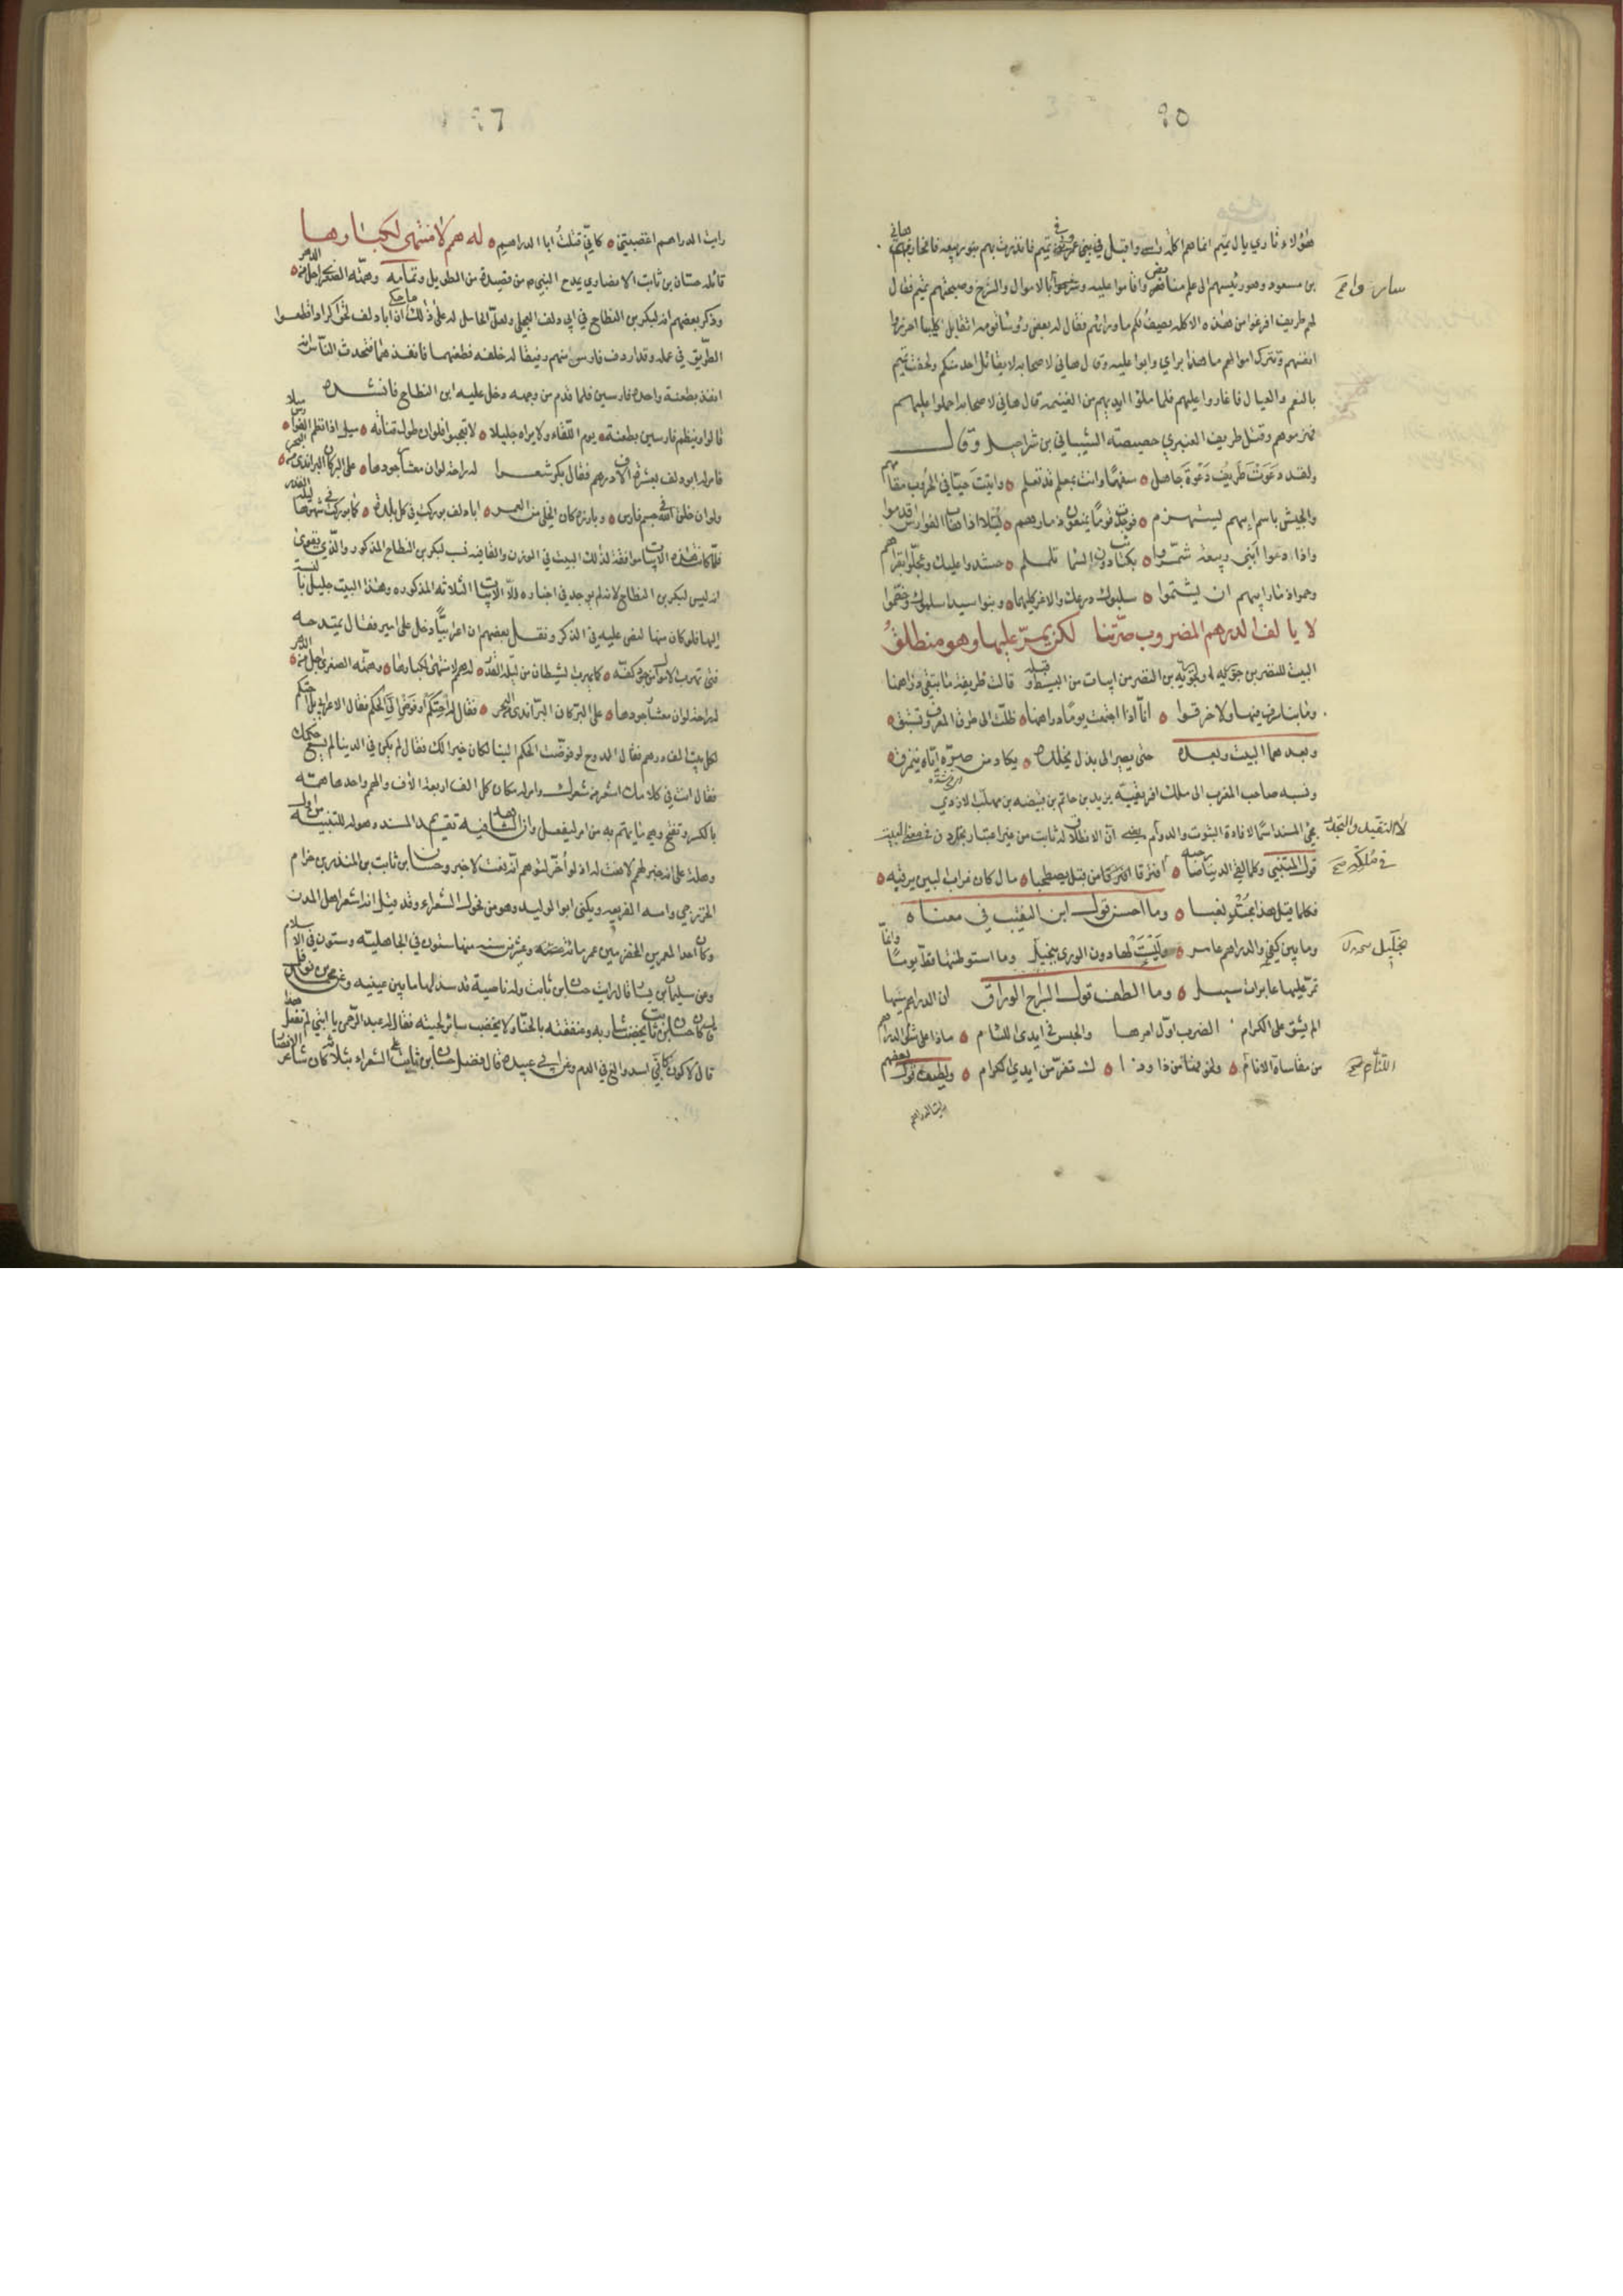 ٩٥
هؤلاء ثاري يال تميم انما هم اكلة راس واقبل في بني عمرو تميم فانذرت بهم بنو ربيعة فانحاز بهم هاني
بن مسعود وهو رئيسهم الى علم مبايض واقاموا عليه وسرحوا بالاموال والسرح وصبحتهم تميم فقال
لهم طريف افرغوا من هذه الاكلة يصيف لكم ما وراءهم فقال له بعض رؤسائهم انقاتل اكلبا احرزوا
انفسهم ونترك اموالهم ما هذا براي وابوا عليه وقال هاني لاصحابه لا يقاتل احد منكم ولحقت تميم
بالنعم والعيال فاغاروا عليهم فلما ملؤا ايديهم من الغنيمة قال هاني لاصحابه احملوا عليهم
فهزموهم وقتل طريف العنبري حصيصة الشيباني بن شراحيل وقال
ولقد دعوت طريف دعوة جاهل ه سفها وانت بمعلم قد تعلم ه واتيت حيا في الحروب مقامهم
والجيش باسم ابيهم يستهزم ه فوجدت قوما يمنعون ذمارهم ه بسلا اذا هاب الفوارس قدموا
واذا دعوا ابني ربيعة شمروا ه بكتائب دون السما تلملم ه حشدوا عليك وعجلوا بقراهم
وحموا ذمار ابيهم ان يشتموا ه سلبوك درعك والاغر كليهما ه وبنوا اسيد اسلموك وخضم
لا يالف الدرهم المضروب صرتنا لكن يمر عليها وهو منطلق
البيت للنضر بن جؤية بن النضر من ابيات من البسيط وقبله قالت طريفة ما تبقى دراهمنا
وما بنا سرف فيها ولا خرق ه انا اذا اجتمعت يوما دراهمنا ه ظلت الى طرق المعروف تستبق ه
وبعدهما البيت وبعده حتى يصير الى نذل يخلده ه يكاد من صره اياه ينمزق ه
ونسبه صاحب المغرب الى ملك افريقية يزيد بن حاتم بن قبيصة بن مهلب الازدي
مجيء المسند اسما لافادة الثبوت والدوام يعني ان الانطلاق له ثابت من غير اعتبار تجدد
قول المتنبي وكلما لقي الدينار صاحبه ه افترقا من قبل يصطحبا ه مال كان غراب البين يرقبه ه
فكلما قيل هذا مجتد نعبا ه وما احسن قول ابن النقيب في معناه
وما بين كفي والدراهم عامر ه ولست لها دون الورى بخليل وما استوطنتها قط يوما وانما
تمر عليها عابرات سبيل ه وما الطف قول السراج الوراق ان الدراهم مسها
الم يشق على الكرام الضرب اول امرها والحبس في ايدي اللئام ه ماذا على شكل الدراهم
من مقاساة الانام ه ولطيف قول بعضهم
رايت الدراهم
٩٦
رايت الدراهم اغضبتني ه كاني قتلت ابا الدراهم ه له همم لا منتهى لكبارها
قائله حسان بن ثابت الانصاري يمدح النبي ص من قصيدة من الطويل وتمامه وهمته الصغرى اجل من الدهر ه
وذكر بعضهم انه لبكر بن النطاح في ابي دلف العجلي ولعل الحامل له على ذلك ما حكي ان ابا دلف لحق اكرادا قطعوا
الطريق في عمله وقد اردف فارس منهم رفيقا له خلفه فطعنهما فانفذهما فتحدث الناس انه
انفذ بطعنة واحدة فارسين فلما قدم من وجهه دخل عليه ابن النطاح فانشده
قالوا وينظم فارسين بطعنة ه يوم اللقاء ولا يراه جليلا ه لا تعجبوا فلو ان طول قناته ه ميل اذا نظم الفوارس ميلا
فامر له ابو دلف بعشرة الاف درهم فقال بكر شعرا له راحة لو ان معشار جودها ه على البر كان البر اندى من البحر ه
ولو ان خلق الله في جسم فارس ه وبارزه كان الخلي من العمر ه ابا دلف بوركت في كل بلدة ه كما بوركت في شهرها ليلة القدر
فلما كانت هذه الابيات موافقة لذلك البيت في الوزن والقافيه نسب لبكر بن النطاح المذكور والذي يقوى
انه ليس لبكر بن النطاح لانه لم يوجد في اخباره الا الابيات الثلاثة المذكوره وهذا البيت جليل بالنسبة
اليها فلو كان منها لنص عليه في الذكر ونقل بعضهم ان اعرابيا دخل على امير فقال يمتدحه
فتى تهرب الاموال من جود كفه ه كما يهرب الشيطان من ليلة القدر ه له همم لا منتهى لكبارها ه وهمته الصغرى اجل من الدهر ه
له راحة لو ان معشار جودها ه على البر كان البر اندى من البحر ه فقال له احتكم او فوض الي الحكم فقال الاعرابي بل احتكم
لكل بيت الف درهم فقال الممدوح لو فوضت الحكم الينا لكان خيرا لك فقال لم يكن في الدنيا ما يسع حكمك
فقال انت في كلامك اشعر من شعرك وامر له مكان كل الف اربعة الاف والهمم واحدها همة
بالكسر وتفتح وهي ما يهتم به من امر ليفعل والشاهد فيه تقديم المسند وهو له للتنبيه من اول
وهلة على انه خبر لهمم لا نعت له اذ لو اخر لتوهم انه نعت لا خبر وحسان بن ثابت بن المنذر بن حرام
الخزرجي وامه الفريعه ويكنى ابو الوليد وهو من فحول الشعراء وقد قيل انه اشعر اهل المدن
وكان احد المعمرين المخضرمين عمر مائة وعشرين سنه منها ستون في الجاهليه وستون في الاسلام
وعن سليمان بن يسار قال رايت حسان بن ثابت وله ناصية قد سدلها ما بين عينيه
كان حسان بن ثابت يخضب شاربه وعنفقته بالحناء ولا يخضب سائر لحيته فقال له عبد الرحمن يا ابتي لم تفعل هذا
قال لاكون كاني اسد والغ في الدم وعن ابي عبيده قال فضل حسان بن ثابت على الشعراء بثلاث كان شاعر الانصار